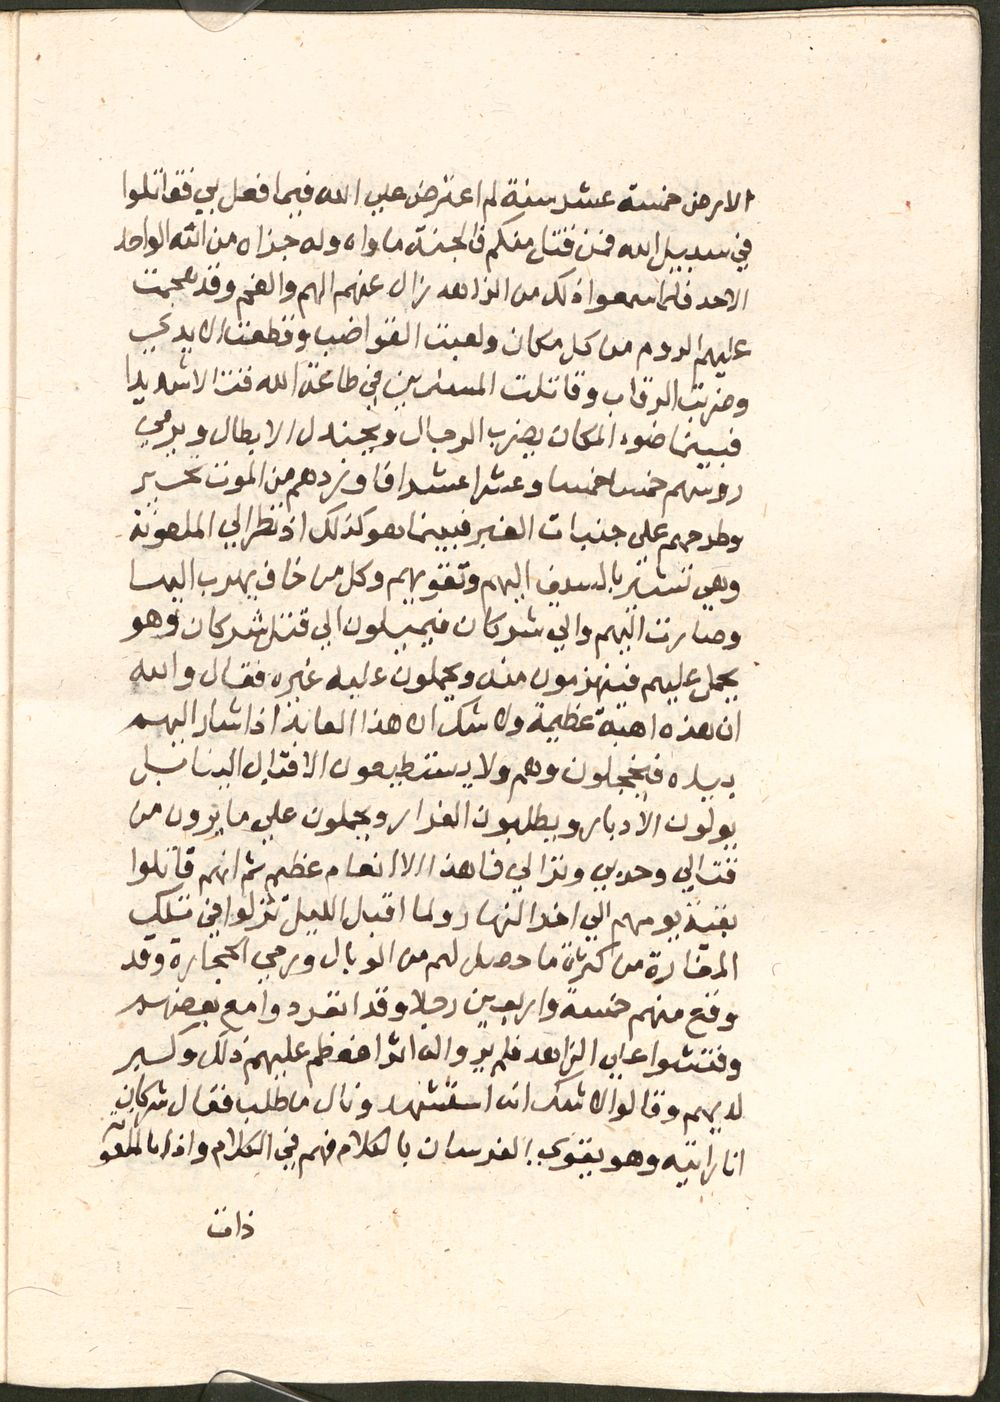 الارض خمسة عشر سنة لم اعترض علي الله فيما فعل بي فقاتلوا
في سبيل الله فمن قتل منكم فالجنة ماواه وله جزاه من الله الواحد
الاحد فلما سمعوا ذلك من الزاهد زال عنهم الهم والغم وقد هجمت
عليهم الروم من كل مكان ولعبت القواضب وقطعت الايدي
وضربت الرقاب وقاتلت المسلمين في طاعة الله قتالا شديدا
فبينما ضوء المكان يضرب الرجال ويجندل الابطال ويرمي
روسهم خمسا خمسا وعشرا عشرا فاوردهم من الموت بحرا
وطرحهم علي جنبات الغبر فبينما هو كذلك اذ نظر الي الملعونة
وهي تشير بالسيف اليهم وتقويهم وكل من خاف يهرب اليها
وصارت اليهم والي شركان فيميلون الي قتل شركان وهو
يحمل عليهم فينهزمون منه ويحملون عليه غيره فقال والله
ان هذه اهبة عظيمة ولا شك ان هذا العابد اذا شار اليهم
بيده فيخجلون وهم ولا يستطيعون الاقبال الينا بل
يولون الادبار ويطلبون الفرار ويحملون علي ما يرون من
قتالي وحربي ونزالي فما هذا الا انعام عظيم ثم انهم قاتلوا
بقية يومهم الي اخر النهار ولما اقبل الليل نزلوا في تلك
المغارة من كثرة ما حصل لهم من الوبال ورمي الحجارة وقد
وقع منهم خمسة واربعين رجلا وقد انفردوا مع بعضهم
وفتشوا علي الزاهد فلم يروا له اثرا فعظم عليهم ذلك وكبير
لديهم وقالوا لا شك انه استشهد ونال ما طلب فقال شركان
انا رايته وهو يقوي الفرسان بالكلام فهم في الكلام واذا بالملعو
ذات